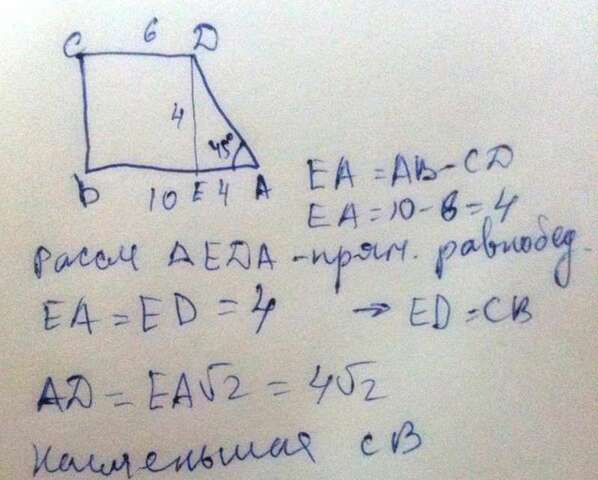 C 6 D
4
45°
b 10 E 4 A
EA = AB - CD
EA = 10 - 6 = 4
рассм ΔEDA - прям. равнобед.
EA = ED = 4 → ED = CB
AD = EA√2 = 4√2
Наименьшая CB